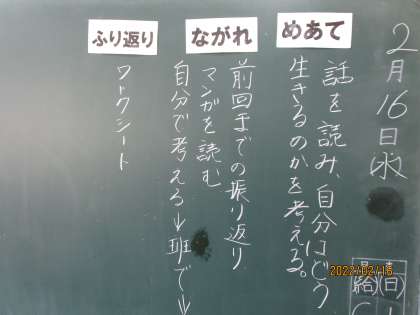 2月16日(水)
めあて
話を読み、自分はどう
生きるのかを考える。
ながれ
前回までの振り返り
マンガを読む
自分で考える→班で→
ふり返り
ワークシート
日
給
2022/02/16